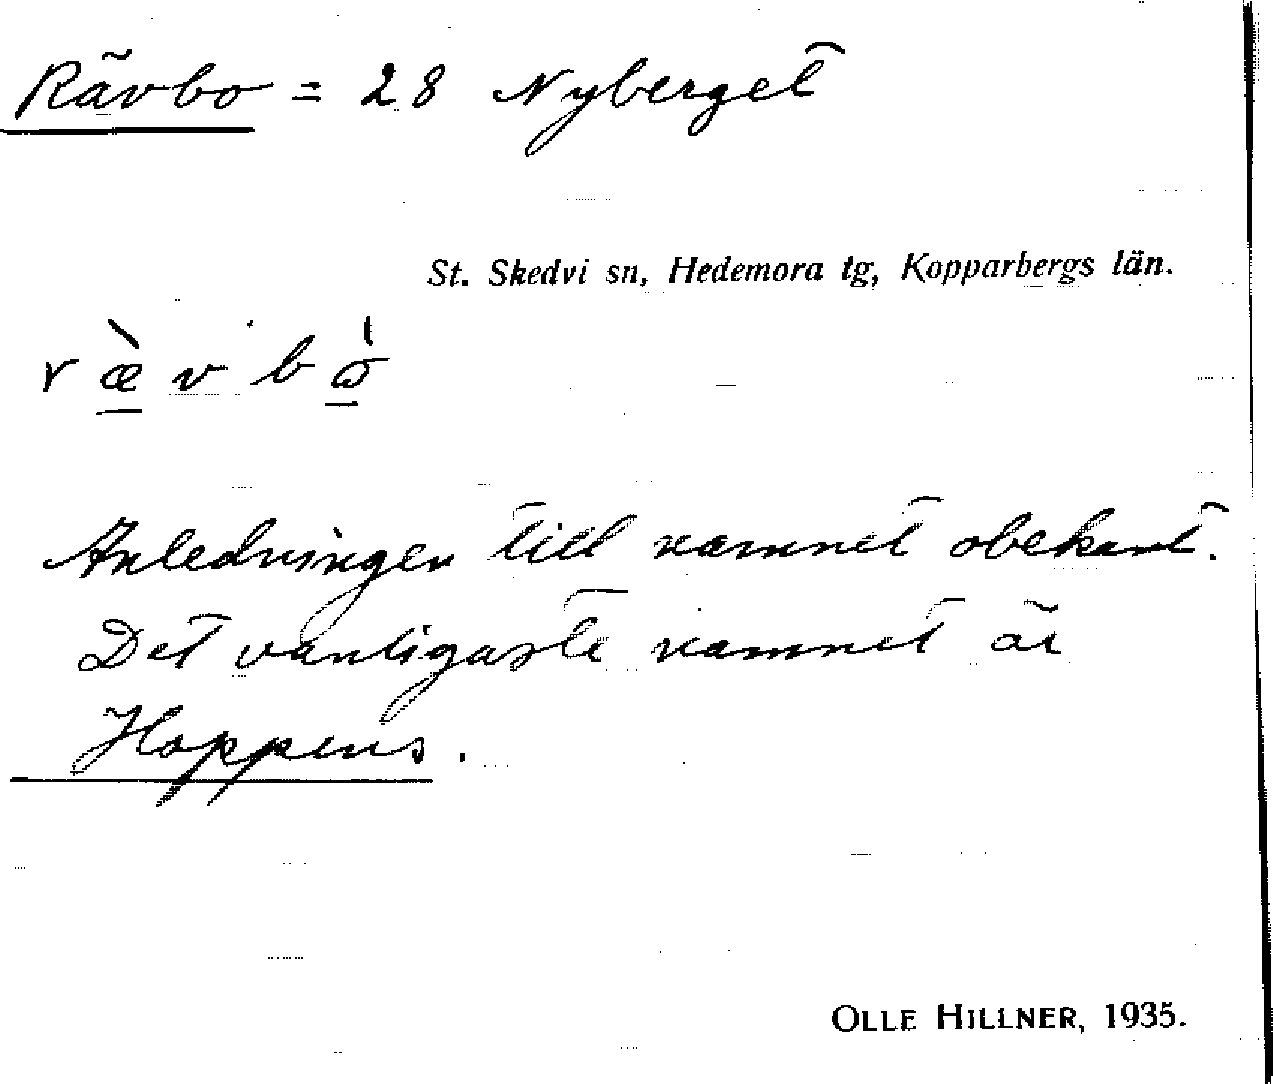 Rävbo = 28 Nyberget
St. Skedvi sn, Hedemora tg, Kopparbergs län.
r æ̀ v b ɷ̀
Anledningen till namnet obekant.
Det vanligaste namnet är
Hoppens.
OLLE HILLNER, 1935.